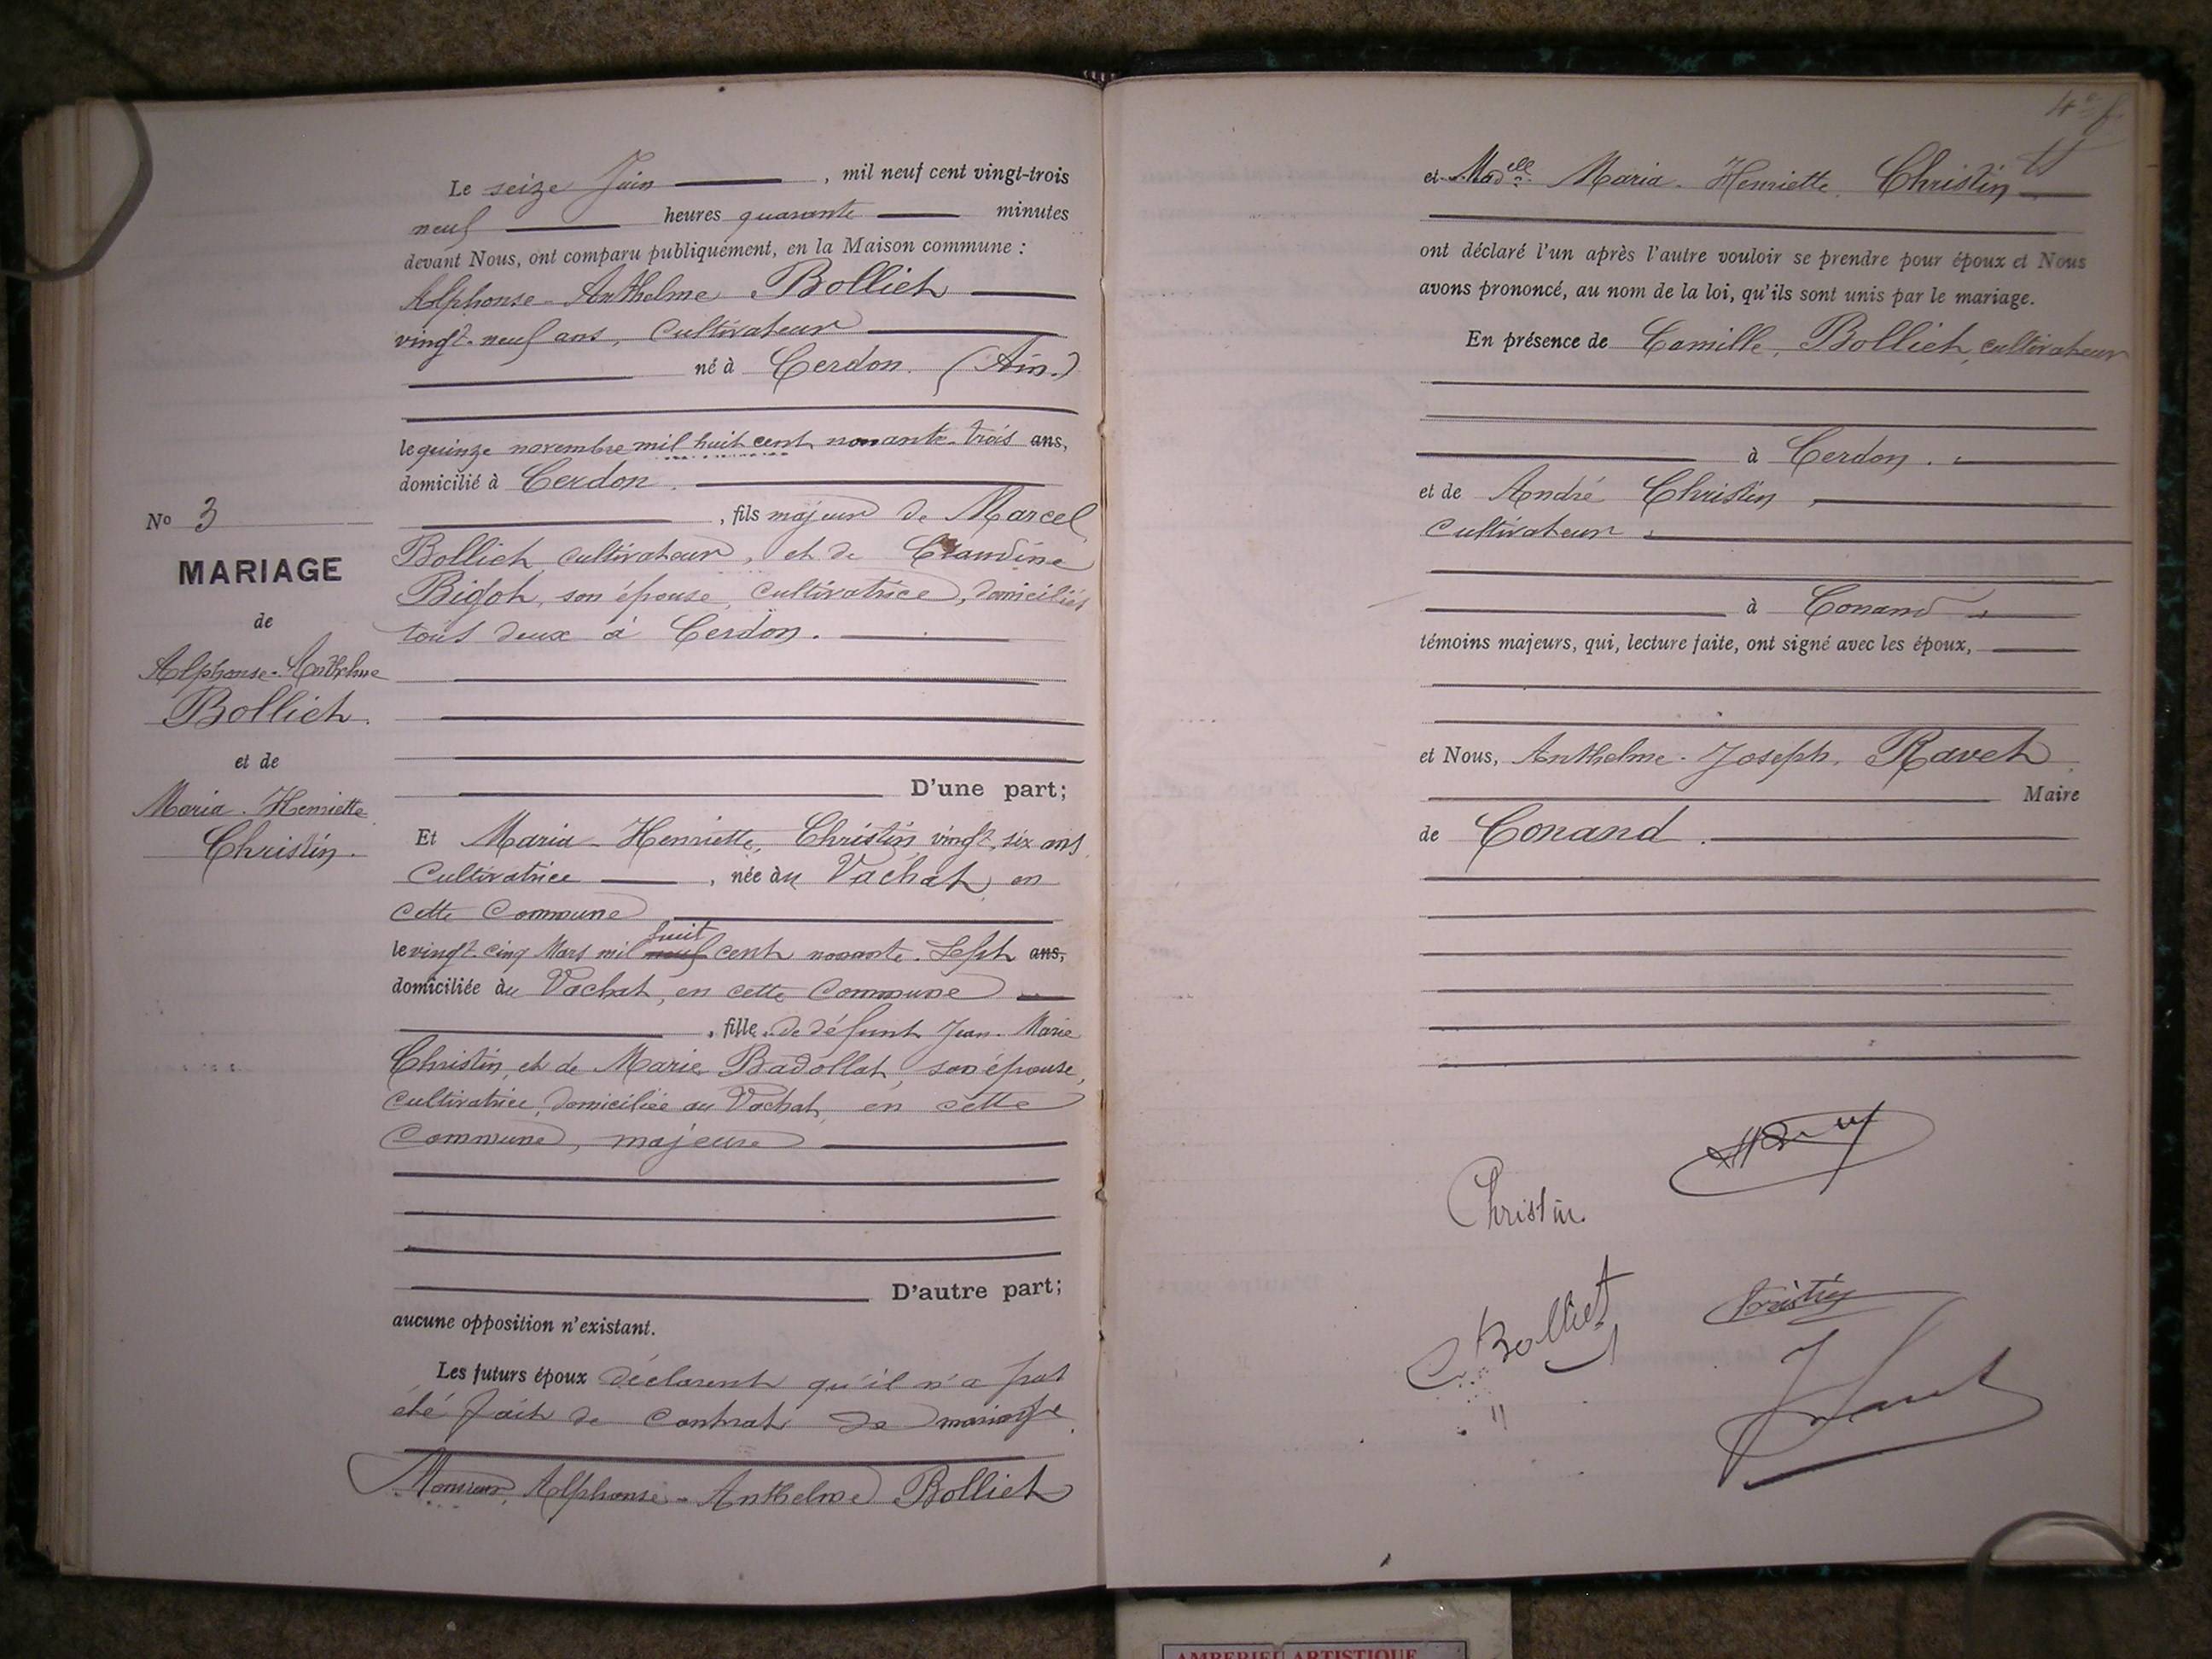 Le seize Juin, mil neuf cent vingt-trois
neuf heures quarante minutes
devant Nous, ont comparu publiquement, en la Maison commune :
Alphonse-Anthelme Bolliet
vingt-neuf ans, Cultivateur
né à Cerdon. (Ain.)
le quinze novembre mil huit cent nonante-trois ans,
domicilié à Cerdon.
, fils majeur de Marcel
Bolliet, cultivateur, et de Claudine
Bigot, son épouse, Cultivatrice, domiciliés
tous deux à Cerdon.
No 3
MARIAGE
de
Alphonse-Anthelme
Bolliet.
et de
Maria-Henriette
Christin.
D'une part;
Et Maria-Henriette, Christin, vingt-six ans
Cultivatrice, née au Vachat, en
cette Commune
huit
le vingt-cinq Mars mil neuf cent nonante-Sept ans,
domiciliée au Vachat, en cette Commune
, fille de défunt Jean-Marie
Christin, et de Marie Badollat, son épouse,
Cultivatrice, domiciliée au Vachat, en cette
Commune, majeure
D'autre part;
aucune opposition n'existant.
Les futurs époux déclarent qu'il n'a pas
été fait de contrat de mariage.
Monsieur, Alphonse-Anthelme Bolliet
et Madelle Maria-Henriette Christin
ont déclaré l'un après l'autre vouloir se prendre pour époux et Nous
avons prononcé, au nom de la loi, qu'ils sont unis par le mariage.
En présence de Camille, Bolliet, cultivateur
à Cerdon.
et de André Christin,
Cultivateur
à Conand
témoins majeurs, qui, lecture faite, ont signé avec les époux,
et Nous, Anthelme-Joseph, Ravet
Maire
de Conand.
Christin
C Bolliet
Christin
AMBERIEU ARTISTIQUE